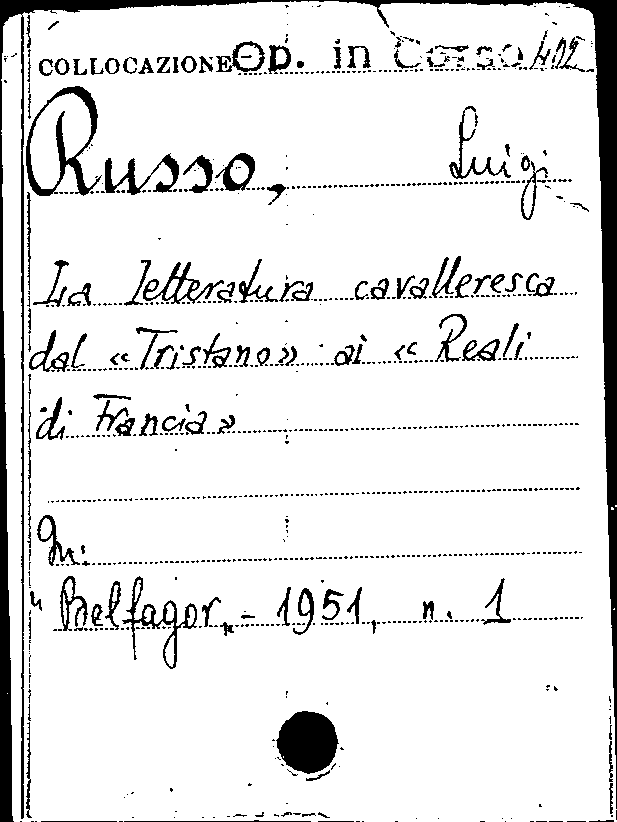 COLLOCAZIONE Op. in Corso 402
Russo, Luigi
La letteratura cavalleresca
dal «Tristano» ai «Reali
di Francia»
In:
"Belfagor„ - 1951, n. 1